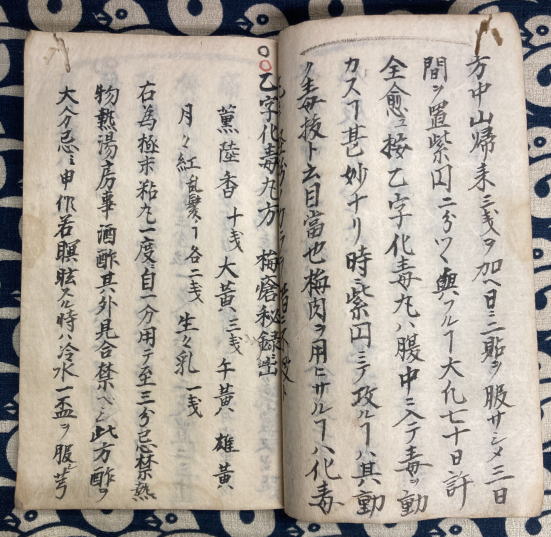 方中山帰来三戔ヲ加ヘ日ニ三貼ヲ服サシメ三日
間ヲ置紫円二分ツヽ與フルヿ大凡七十日許
全愈ス按乙字化毒丸ハ腹中ニ入テ毒ヲ動
カスヿ甚妙ナリ時ニ紫円ニテ攻ルヿハ其動
ク毒抜ト云目當也梅肉ヲ用ヒサルヿハ化毒
〇〇乙字化毒丸方 梅瘡秘録出
薫陸香 十戔 大黄 三戔 牛黄 雄黄
月々紅 乱髪 各二戔 生々乳 一戔
右為極末粘丸一度ニ自一分用テ至三分忌禁熱
物熱湯房事酒酢其外見合禁ヘシ此方酢ヲ
大ハタ忌ミ申作若瞑眩スル時ハ冷水一盃ヲ服シ